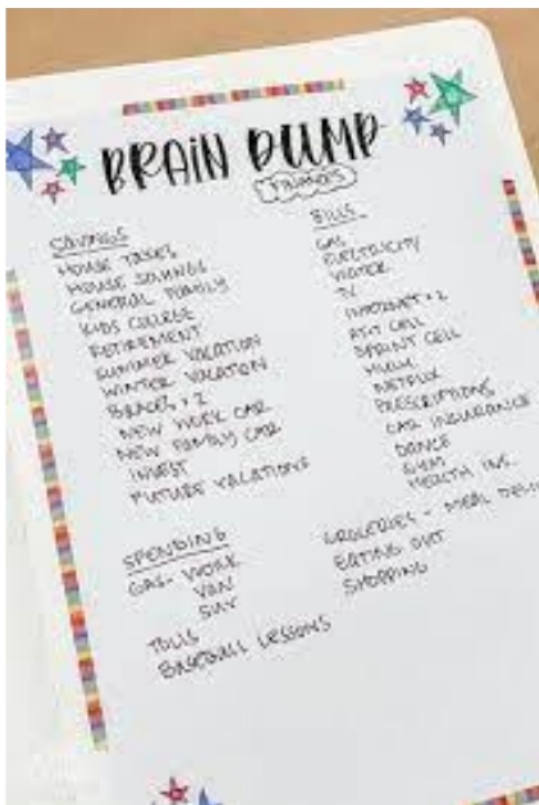 BRAIN DUMP
FINANCES
SAVINGS
HOUSE TAXES
HOUSE SAVINGS
GENERAL FAMILY
KIDS COLLEGE
RETIREMENT
SUMMER VACATION
WINTER VACATION
BRACES x 2
NEW WORK CAR
NEW FAMILY CAR
INVEST
FUTURE VACATIONS
BILLS
GAS
ELECTRICITY
WATER
TV
INTERNET x 2
AT&T CELL
SPRINT CELL
HULU
NETFLIX
PRESCRIPTIONS
CAR INSURANCE
DANCE
GYM
HEALTH INS.
SPENDING
GAS - WORK
VAN
SUV
TOLLS
BASEBALL LESSONS
GROCERIES - MEAL
EATING OUT
SHOPPING